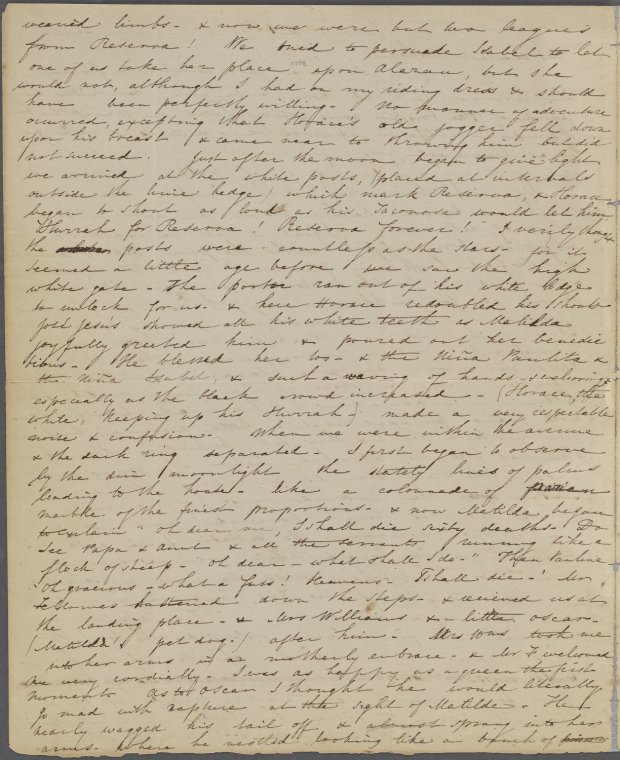 wearied limbs - & now we were but two leagues
from Reserva! We tried to persuade Isabel to let
one of us take her place upon Alazan, but she
would not, although I had on my riding dress & should
have been perfectly willing - No manner of adventure
occurred, excepting that Horace's old jogger fell down
upon his breast & came near to throwing him but did
not succeed. Just after the moon began to give light
we arrived at the white posts, (placed at intervals
outside the lime hedge) which mark Reserva, & Horace
began to shout as loud as his would let him
Hurrah for Reserva! Reserva forever!" I verily thought
the posts were countless as the stars - for it
seemed a little age before we saw the high
white gate - The porter ran out of his white lodge
to unlock for us - & here Horace redoubled his shouts
José Jesus showed all his white teeth as Matilda
joyfully greeted him & poured out her benedic
tions - He blessed her too - & the Niña Paulita &
the Niña Isabel, & such a waving of hands & welcoming
especially as the black crowd increased - (Horace, the
white, keeping up his Hurrah) made a very respectable
noise & confusion - When we were within the avenue
& the dark ring separated - I first began to observe
by the dim moonlight the stately lines of palms
leading to the house - like a colonnade of
marble of the finest proportions - & now Matilda began
to exclaim "oh dear me, I shall die sixty deaths - Do
see Papa & Aunt & all the servants running like a
flock of sheep - oh dear - what shall I do -" Then Pauline
oh gracious - what a fuss! Heavens - I shall die -" Mr
Fellowes hastened down the steps - & received us at
the landing place - & Mrs Williams & little Oscar -
(Matilda's pet dog -) after him - Mrs Wms took me
into her arms in a motherly embrace - & Mr F welcomed
me very cordially - I was as happy as a queen the first
moments As to Oscar I thought he would literally
go mad with rapture at the sight of Matilda - He
nearly wagged his tail off, & almost sprang into her
arms - where he nestled looking like a bunch of